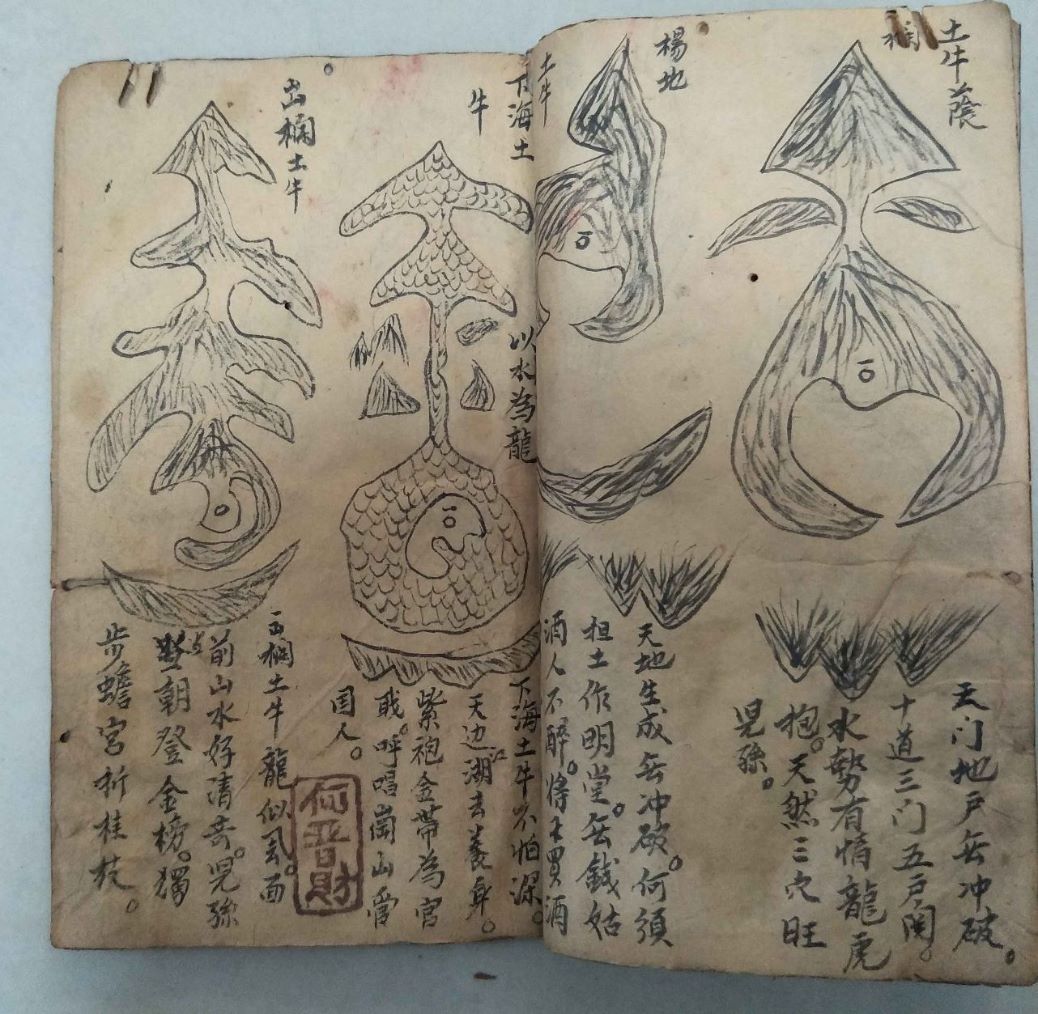 土牛蔭
欄
天门地戸無冲破。
十道三门五戸関。
水勢有情龍虎
抱。天然三穴旺
児孫。
楊地
土牛
天地生成無冲破。何須
担土作明堂。無錢姑
酒人不醉。将土買酒
下海土
牛
以水為龍
下海土牛不怕深。
天边江湖去養身。
紫袍金帶為官
戝。呼唱崗山管
国人。
出欄土牛
出欄土牛龍似
前山水好清奇。児孫
朝登金榜。獨
步蟾宮折桂枝。
何晋財